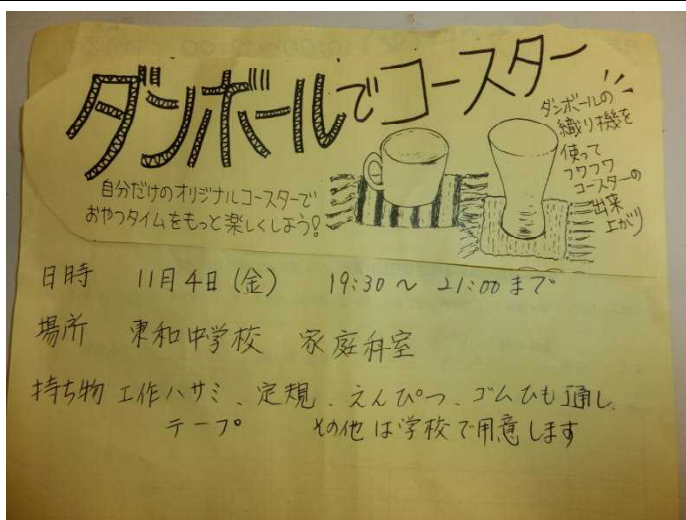 ダンボールでコースター
ダンボールの
織り機を
使って
フワフワ
コースターの
出来
上がり
自分だけのオリジナルコースターで
おやつタイムをもっと楽しくしよう!
日時 11月4日(金) 19:30~21:00まで
場所 東和中学校 家庭科室
持ち物 工作ハサミ、定規、えんぴつ、ゴムひも通し、
テープ その他は学校で用意します